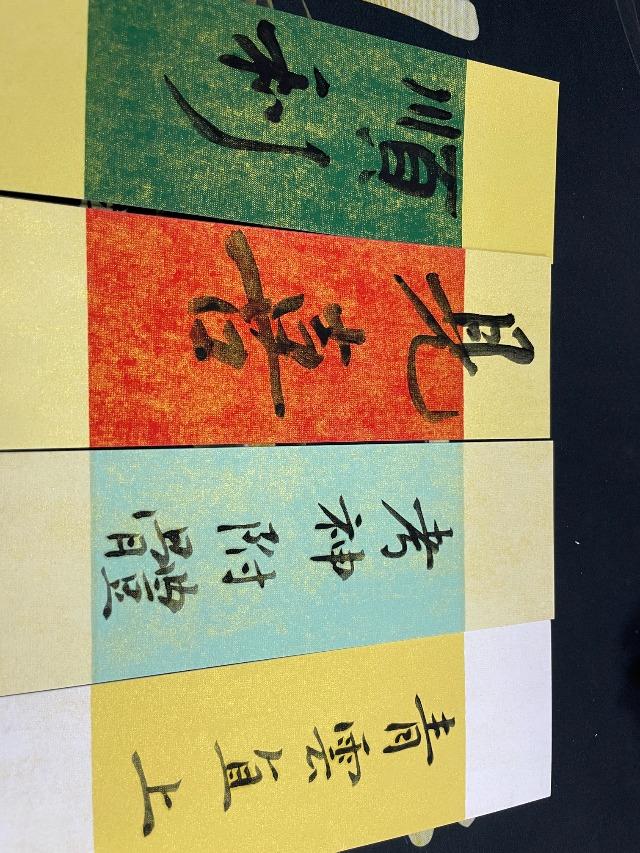 順利
見喜
考神附體
青雲直上